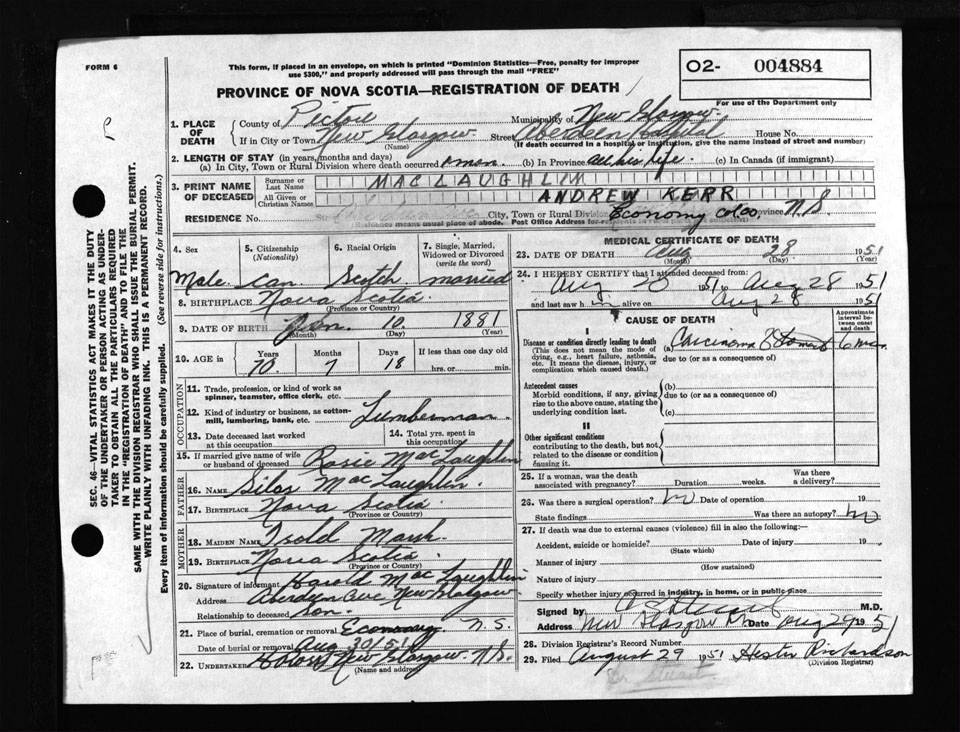 FORM 6
This form, if placed in an envelope, on which is printed "Dominion Statistics—Free, penalty for improper
use $300," and properly addressed will pass through the mail "FREE"
O2- 004884
PROVINCE OF NOVA SCOTIA—REGISTRATION OF DEATH
For use of the Department only
1. PLACE OF DEATH
County of Pictou Municipality of New Glasgow
If in City or Town New Glasgow Street Aberdeen Hospital House No.
(Name) (If death occurred in a hospital or institution, give the name instead of street and number)
2. LENGTH OF STAY (in years, months and days)
(a) In City, Town or Rural Division where death occurred 1 mon. (b) In Province all his life (c) In Canada (if immigrant)
3. PRINT NAME OF DECEASED
Surname or Last Name MACLAUGHLIN
All Given or Christian Names ANDREW KERR
RESIDENCE No. City, Town or Rural Division Economy Colco Province N.S.
Residence means usual place of abode. Post Office Address for residents in
4. Sex Male
5. Citizenship (Nationality) Can.
6. Racial Origin Scotch
7. Single, Married, Widowed or Divorced (write the word) married
8. BIRTHPLACE Nova Scotia
(Province or Country)
9. DATE OF BIRTH Jan. 10 1881
(Month) (Day) (Year)
10. AGE in Years 70 Months 7 Days 18 If less than one day old hrs. or min.
OCCUPATION
11. Trade, profession, or kind of work as spinner, teamster, office clerk, etc.
12. Kind of industry or business, as cotton-mill, lumbering, bank, etc. Lumberman
13. Date deceased last worked at this occupation
14. Total yrs. spent in this occupation
15. If married give name of wife or husband of deceased Rosie MacLaughlin
FATHER
16. NAME Silas MacLaughlin
17. BIRTHPLACE Nova Scotia
(Province or Country)
MOTHER
18. MAIDEN NAME Marsh
19. BIRTHPLACE Nova Scotia
(Province or Country)
20. Signature of informant Harold MacLaughlin
Address Aberdeen Ave New Glasgow
Relationship to deceased Son.
21. Place of burial, cremation or removal Economy N.S.
Date of burial or removal Aug 30/51
22. UNDERTAKER New Glasgow N.S.
(Name and address)
MEDICAL CERTIFICATE OF DEATH
23. DATE OF DEATH Aug 28 1951
(Month) (Day)
24. I HEREBY CERTIFY that I attended deceased from
Aug 20 1951 to Aug 28 1951
and last saw h m alive on Aug 28 1951
I
CAUSE OF DEATH
Approximate interval between onset and death
Disease or condition directly leading to death
(This does not mean the mode of dying, e.g., heart failure, asthenia, etc. It means the disease, injury, or complication which caused death.)
(a) Carcinoma of Stomach 6 mon.
due to (or as a consequence of)
Antecedent causes
Morbid conditions, if any, giving rise to the above cause, stating the underlying condition last.
(b)
due to (or as a consequence of)
(c)
II
Other significant conditions
contributing to the death, but not related to the disease or condition causing it.
25. If a woman, was the death associated with pregnancy? Duration weeks. Was there a delivery?
26. Was there a surgical operation? no Date of operation 19
State findings Was there an autopsy? no
27. If death was due to external causes (violence) fill in also the following:—
Accident, suicide or homicide? Date of injury 19
(State which)
Manner of injury
(How sustained)
Nature of injury
Specify whether injury occurred in industry, in home, or in public place
Signed by M.D.
Address New Glasgow Date Aug 29 1951
28. Division Registrar's Record Number
29. Filed August 29 1951 Hester Richardson
(Division Registrar)
Dr. Stuart
SEC. 46—VITAL STATISTICS ACT MAKES IT THE DUTY
OF THE UNDERTAKER OR PERSON ACTING AS UNDER-
TAKER TO OBTAIN ALL THE PARTICULARS REQUIRED
IN THE "REGISTRATION OF DEATH" AND TO FILE THE
SAME WITH THE DIVISION REGISTRAR WHO SHALL ISSUE THE BURIAL PERMIT.
WRITE PLAINLY WITH UNFADING INK. THIS IS A PERMANENT RECORD.
Every item of information should be carefully supplied. (See reverse side for instructions.)